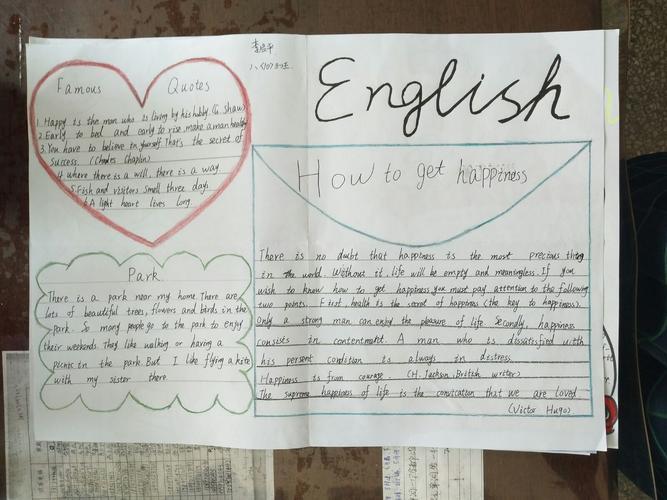 李启平
English
Famous Quotes
1. Happy is the man who is living by his hobby. (G. shaw)
2. Early to bed and early to rise, make a man healthy
3. You have to believe in yourself. That's the secret of
success. (Charles Chaplin)
4. where there is a will, there is a way.
5. Fish and visitors smell three days
6. A light heart lives long.
Park
There is a park near my home. There are
lots of beautiful trees, flowers and birds in the
park. So many people go to the park to enjoy
their weekends. They like walking or having a
picnic in the park. But I like flying a kite
with my sister there.
How to get happiness
There is no doubt that happiness is the most precious thing
in the world. Without it, life will be empty and meaningless. If you
wish to know how to get happiness, you must pay attention to the following
two points. First, health is the secret of happiness (the key to happiness).
Only a strong man can enjoy the pleasure of life. Secondly, happiness
consists in contentment. A man who is dissatisfied with
his persent condition is always in distress.
Happiness is from courage. (H. Jackson, British writer)
The supreme happiness of life is the convication that we are loved.
(Victor Hugo)